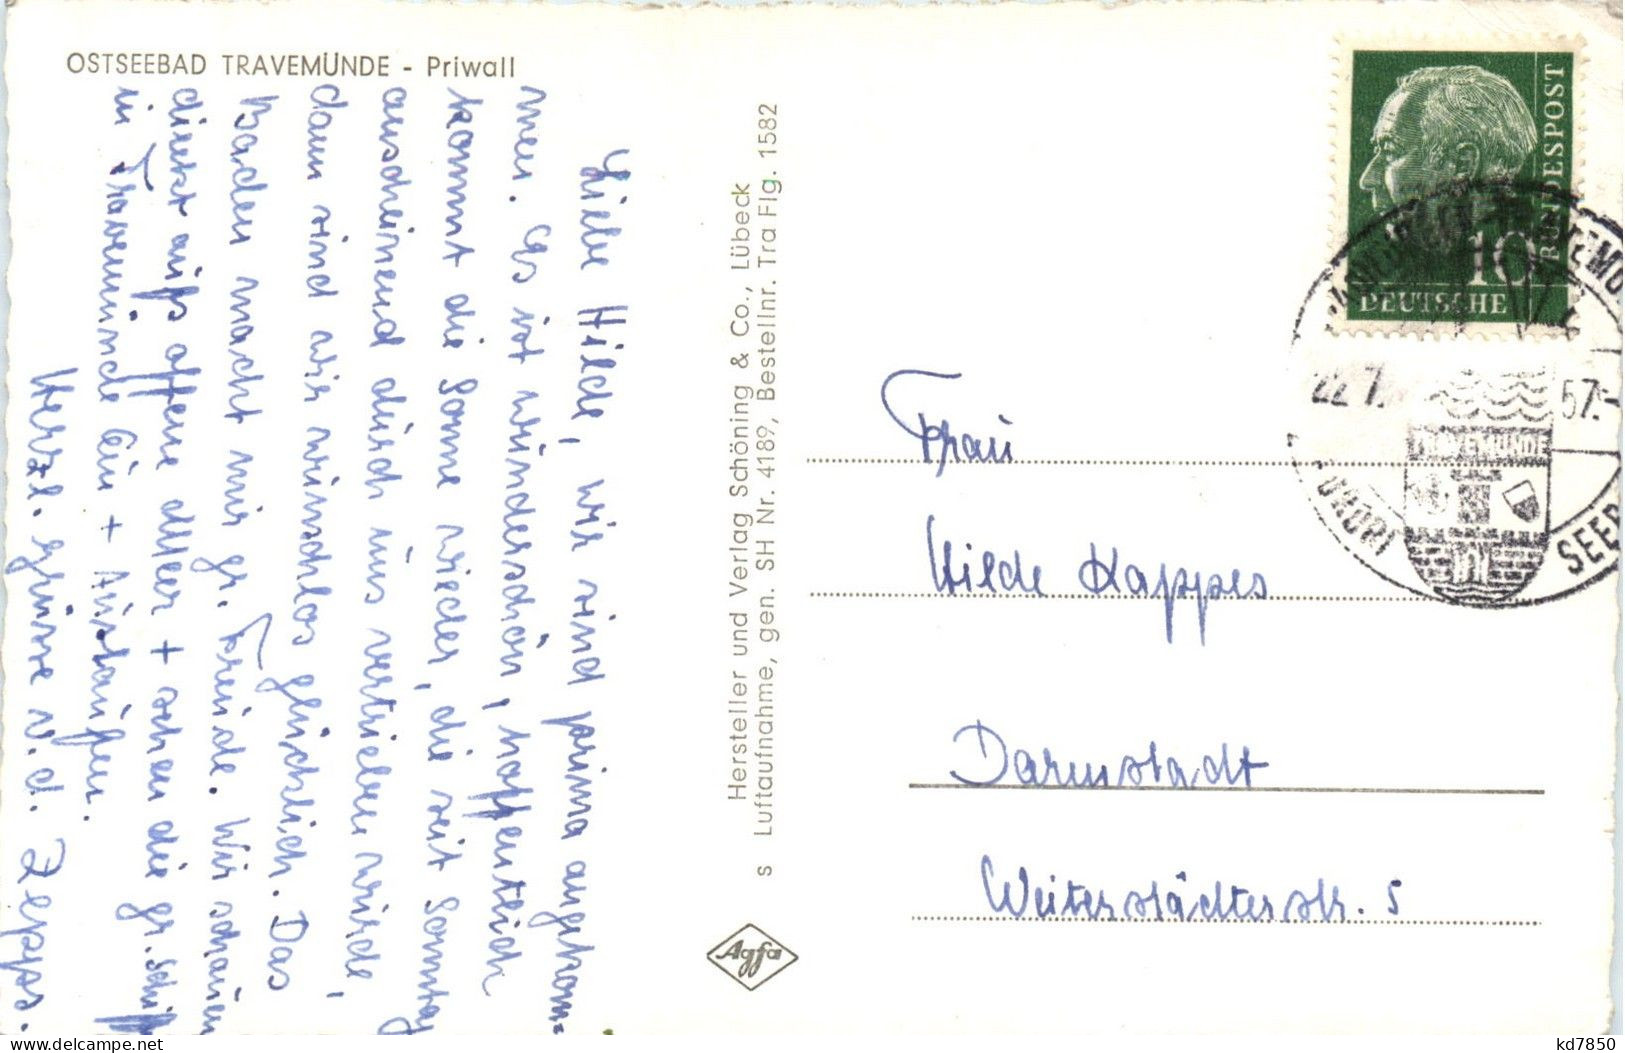 OSTSEEBAD TRAVEMÜNDE - Priwall
Liebe Hilde, wir sind prima angekom-
men. Es ist wunderschön, hoffentlich
kommt die Sonne wieder, die seit Sonntag
anscheinend durch uns vertrieben wurde,
dann sind wir wunschlos glücklich. Das
Baden macht mir gr. Freude. Wir schauen
direkt aufs offene Meer + sehen die gr. Schiff
in Travemünde Ein + Auslaufen.
Herzl. Grüsse v. d. Zepps.
Hersteller und Verlag Schöning & Co., Lübeck
s Luftaufnahme, gen. SH Nr. 4189, Bestellnr. Tra Flg. 1582
Agfa
DEUTSCHE BUNDESPOST
10
22.7. 57.-
TRAVEMÜNDE
SEEB
Frau
Hilde Kappes
Darmstadt
Weiterstädterstr. 5
kd7850